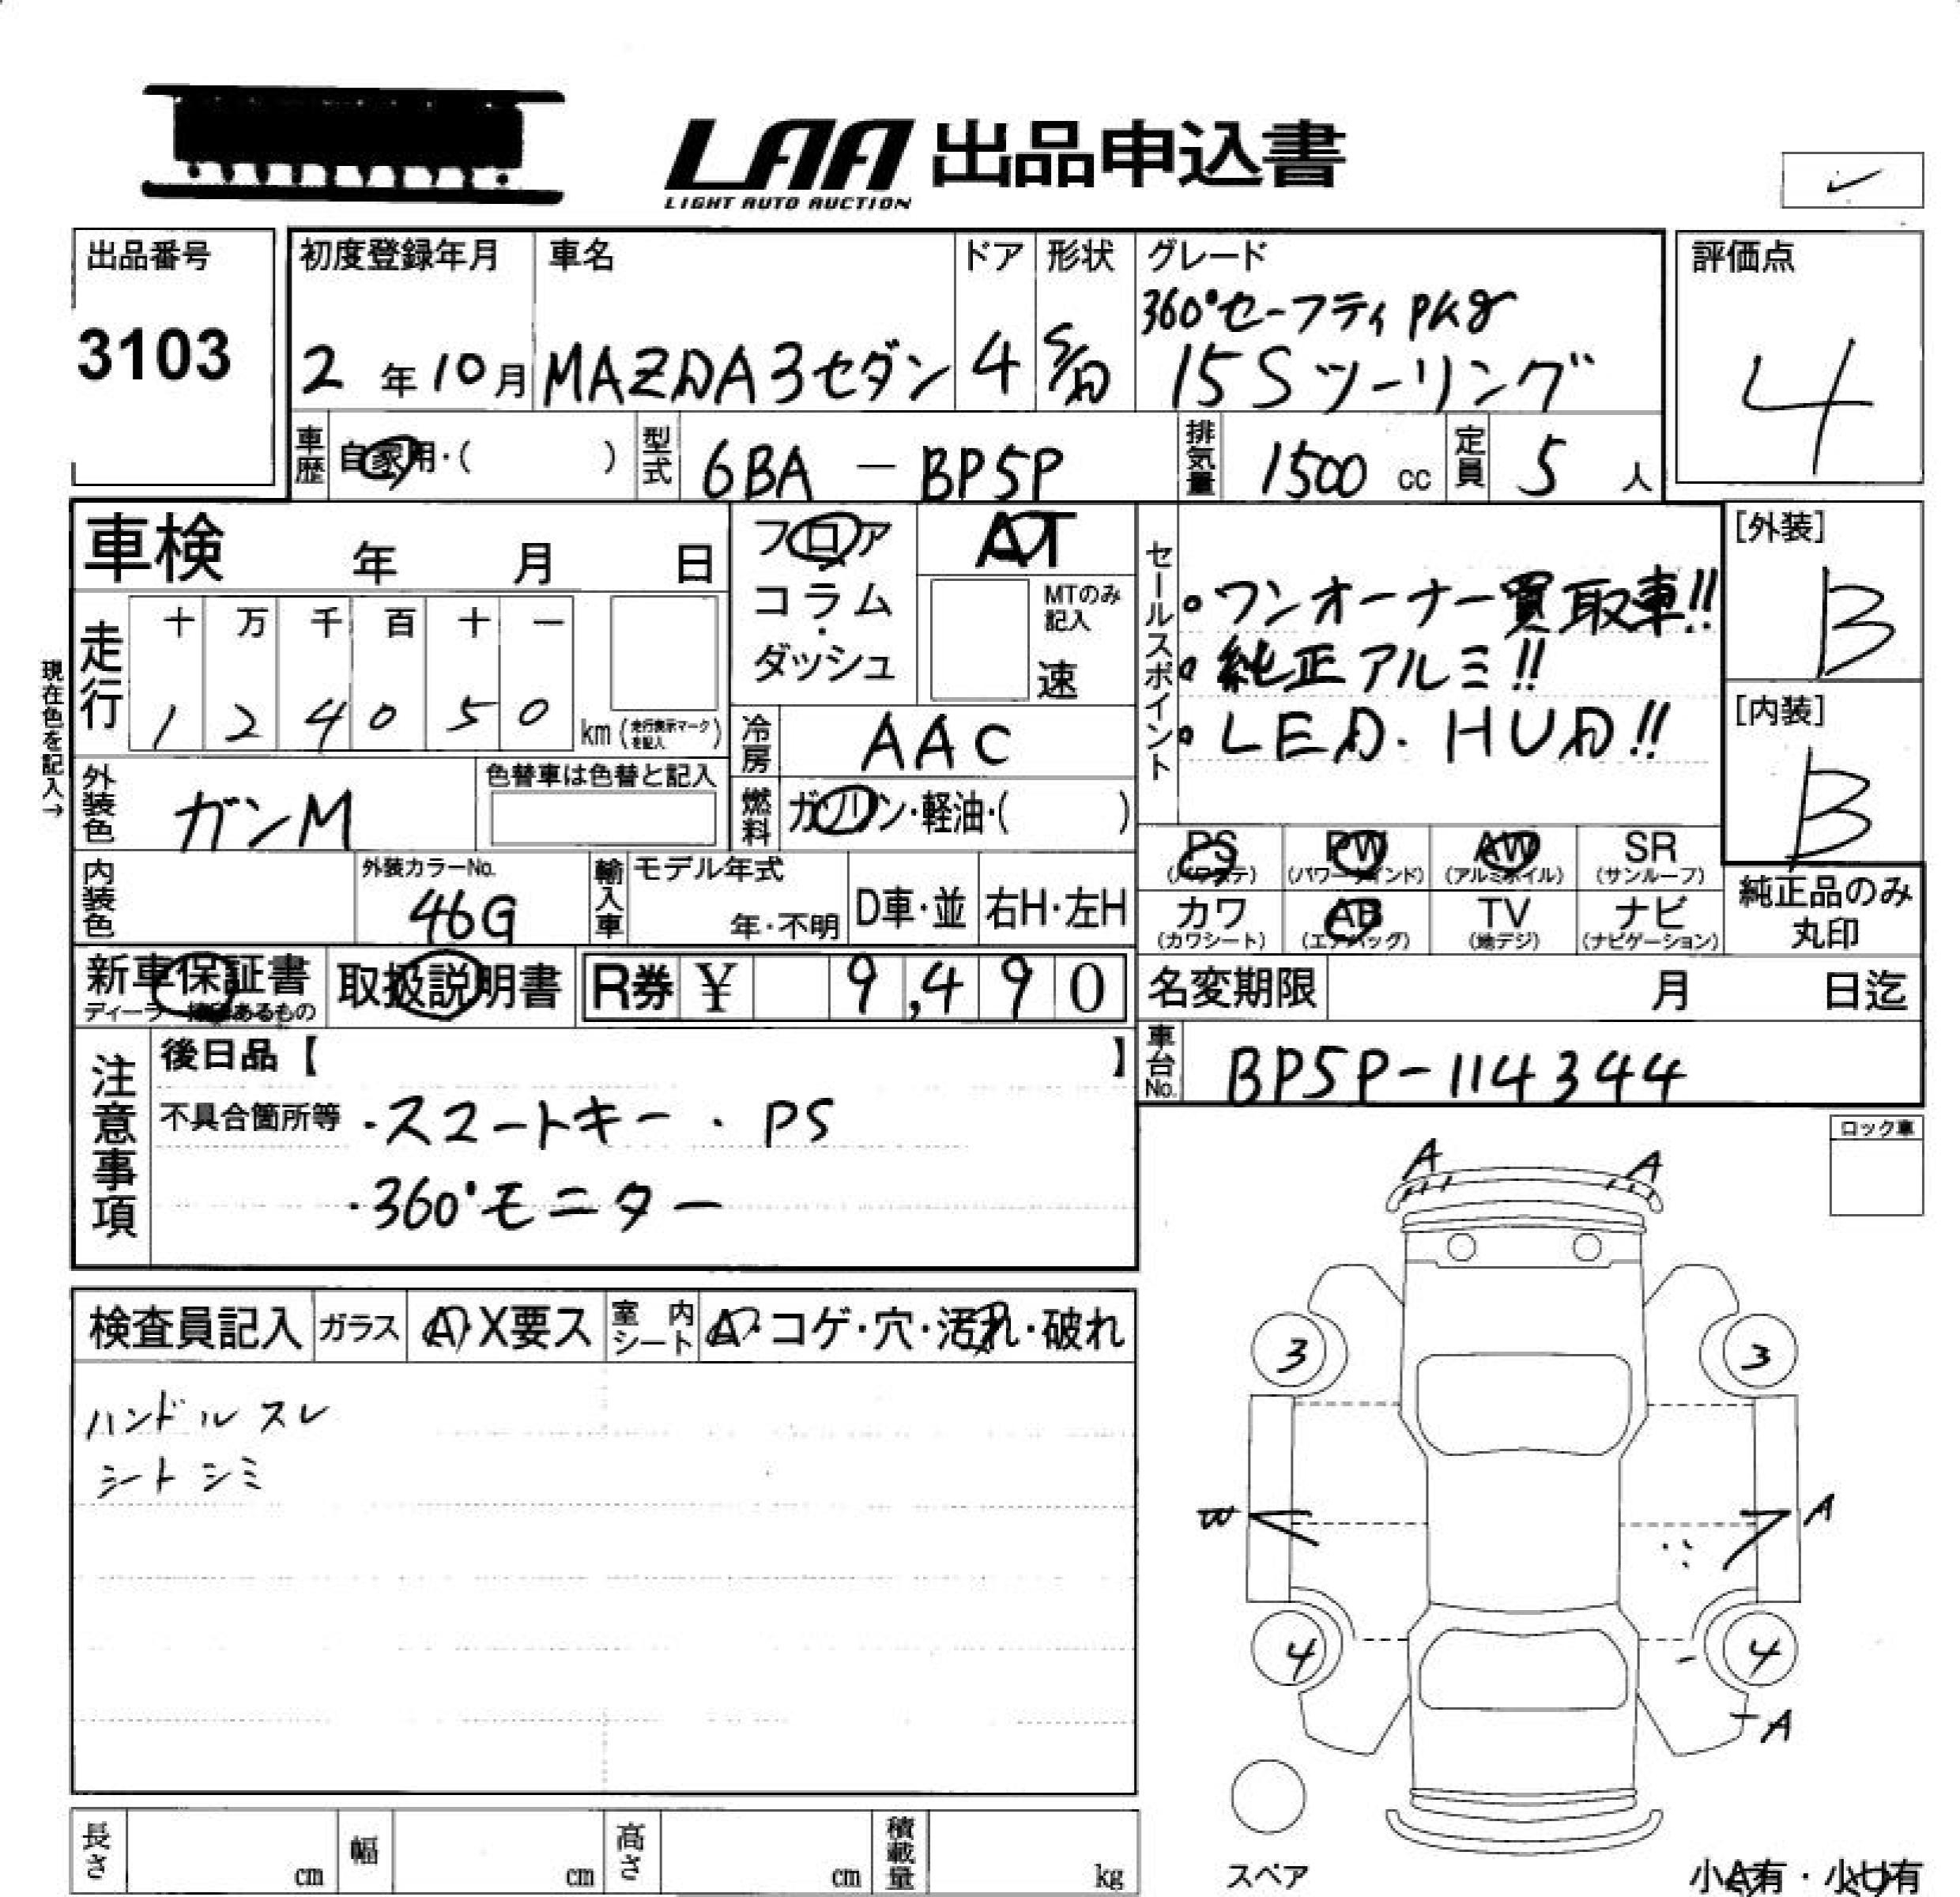 LAA 出品申込書
LIGHT AUTO AUCTION
✓
出品番号
3103
初度登録年月
2年10月
車名
MAZDA3セダン
ドア
4
形状
グレード
360°セーフティPKg
15Sツーリング
評価点
4
車歴
自家用・( )
型式
6BA - BP5P
排気量
1500 cc
定員
5 人
車検 年 月 日
フロア
コラム・
ダッシュ
AT
MTのみ記入
速
セールスポイント
・ワンオーナー買取車!!
・純正アルミ!!
・LED. HUD!!
[外装]
B
[内装]
B
現在色を記入→
走行
十 万 千 百 十 一
1 2 4 0 5 0
km (走行表示マークを記入)
冷房
AAC
外装色
ガンM
色替車は色替と記入
燃料
ガソリン・軽油・( )
内装色
外装カラーNo.
46G
輸入車
モデル年式
年・不明
D車・並
右H・左H
PS (パワステ)
PW (パワーウインド)
AW (アルミホイル)
SR (サンルーフ)
カワ (カワシート)
AB (エアバッグ)
TV (地デジ)
ナビ (ナビゲーション)
純正品のみ
丸印
新車保証書
取扱説明書
R券 ¥ 9,490
名変期限 月 日迄
注意事項
後日品【 】
不具合箇所等 ・スマートキー ・PS
・360°モニター
車台No.
BP5P-114344
ロック車
検査員記入
ガラス
A・X要ス
室内シート
A・コゲ・穴・汚れ・破れ
ハンドルスレ
シートシミ
A
A
3
3
W
A
4
4
A
長さ cm
幅 cm
高さ cm
積載量 kg
スペア
小A有・小U有